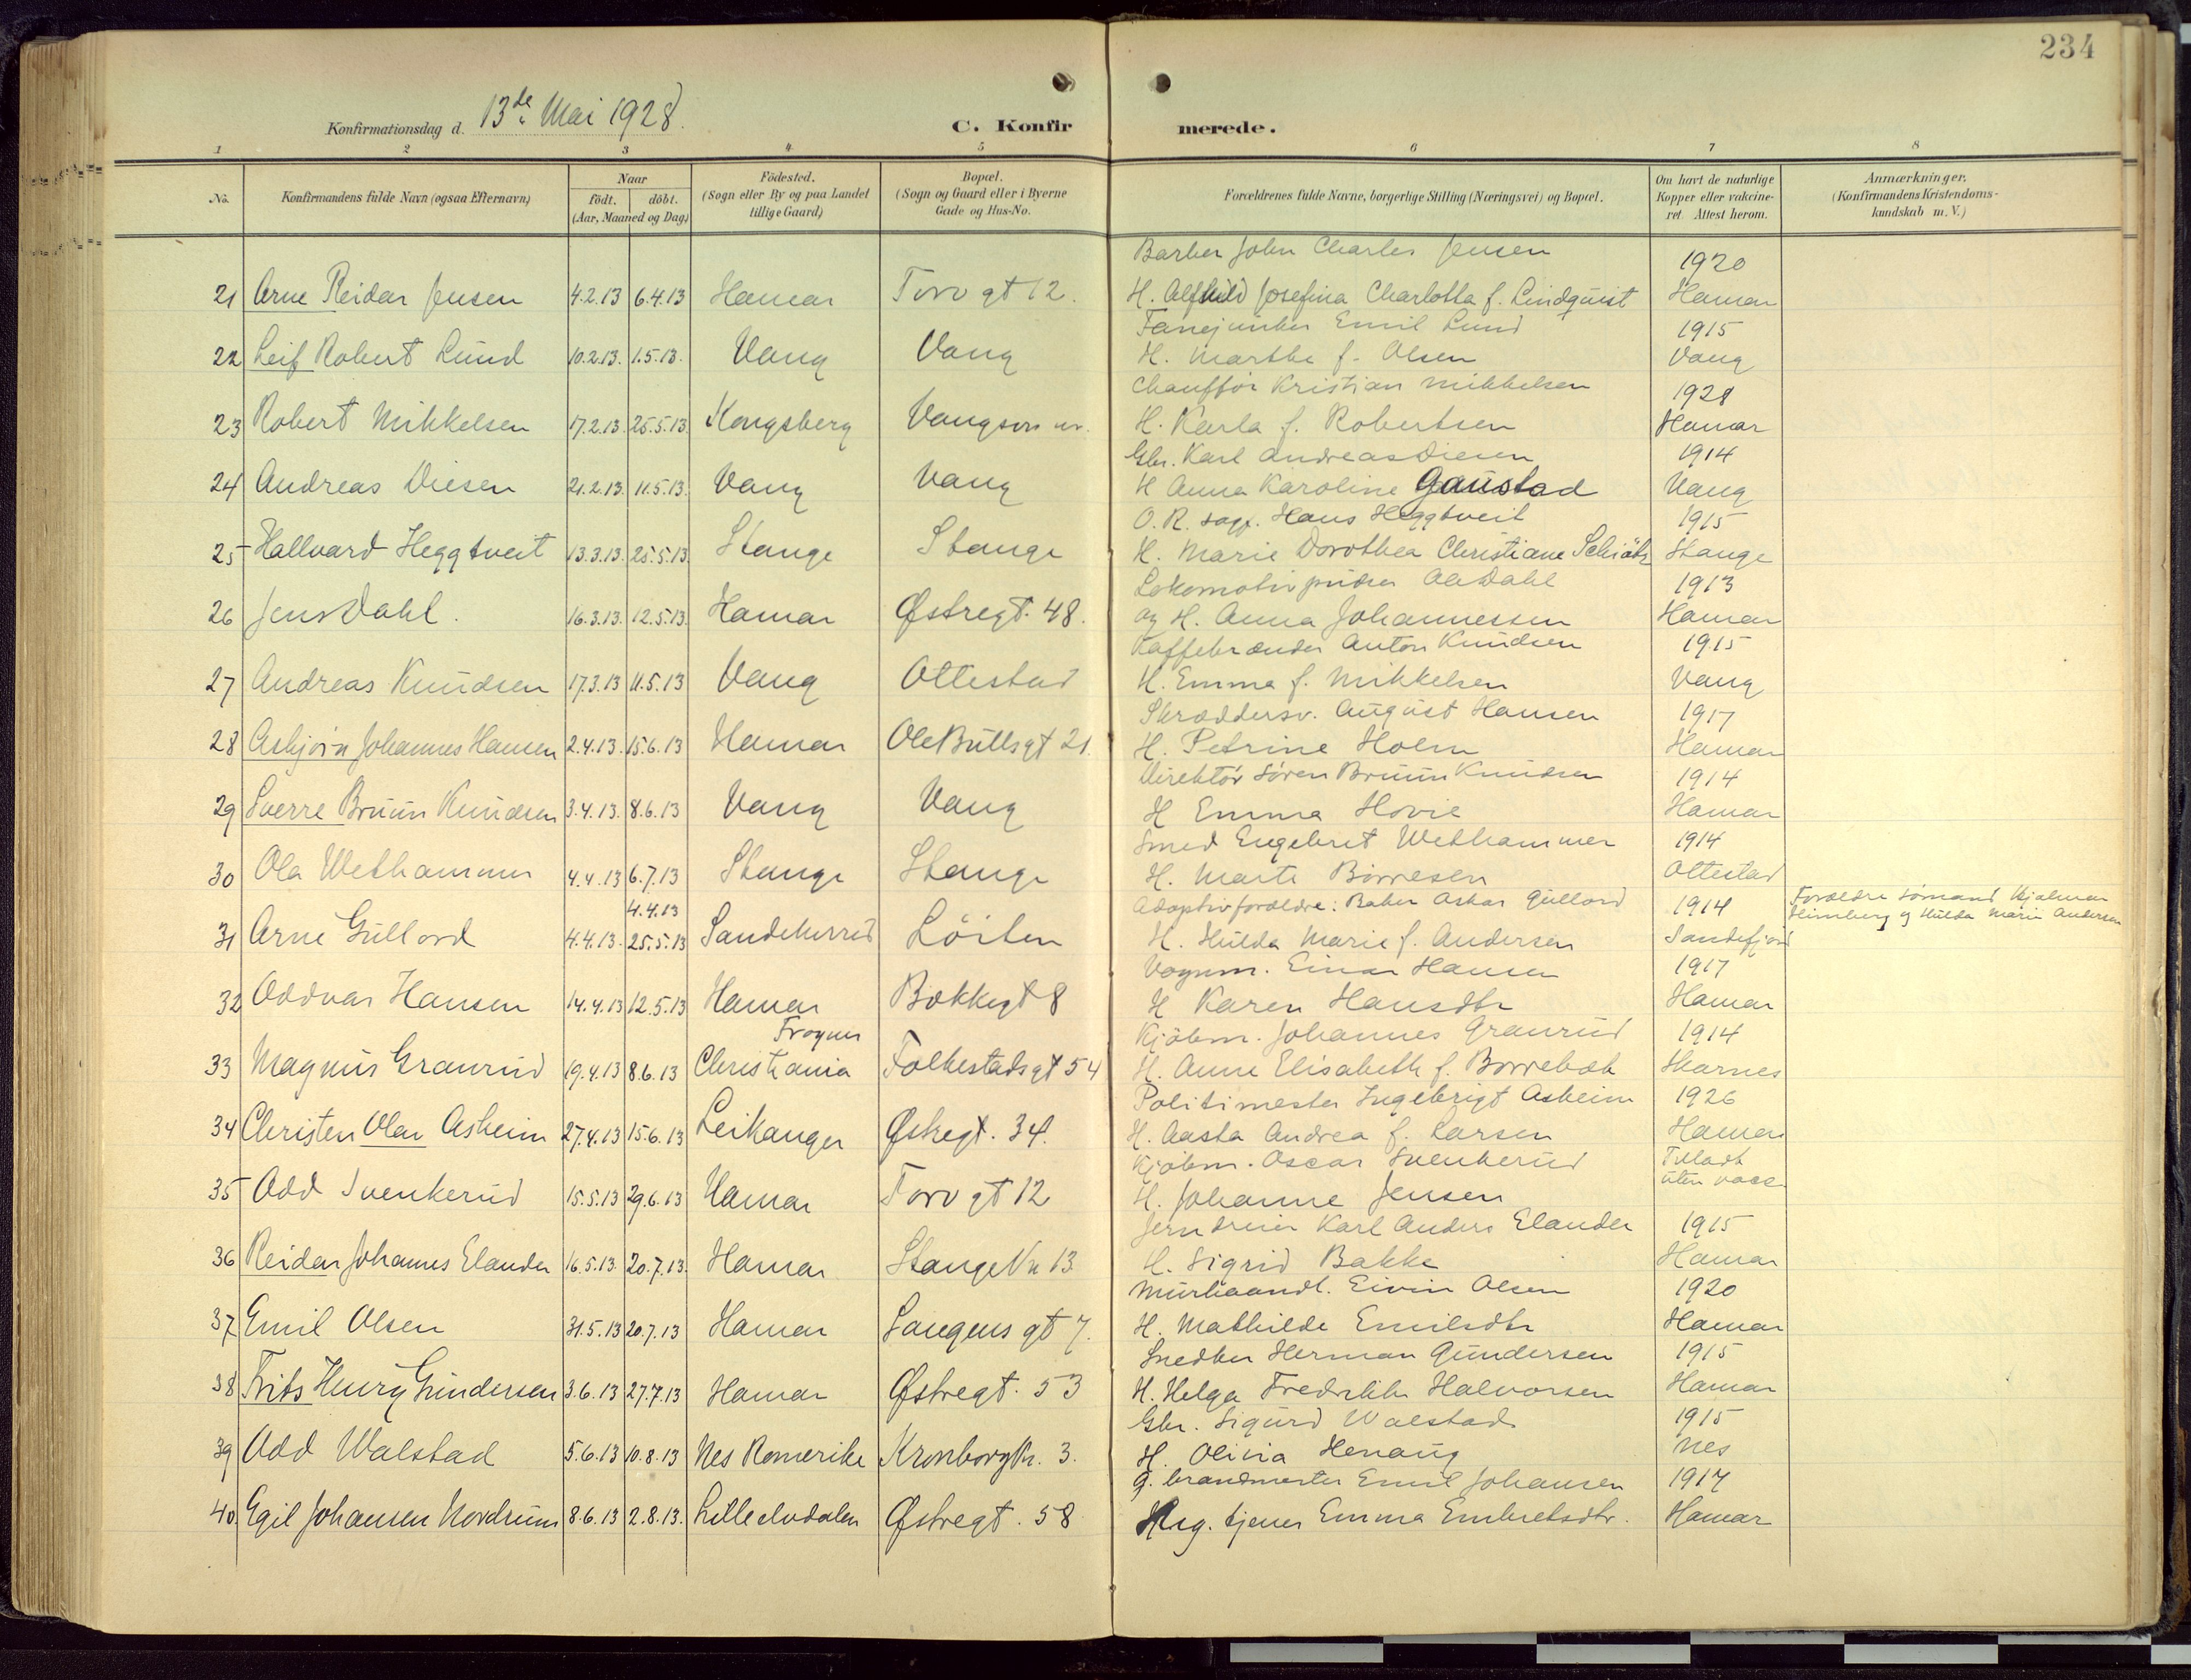 234
Konfirmationsdag d. 13de Mai 1928.
C. Konfirmerede.
1 2 3 4 5 6 7 8
No.
Konfirmandens fulde Navn (ogsaa Efternavn)
Naar
födt. döbt.
(Aar, Maaned og Dag)
Födested.
(Sogn eller By og paa Landet
tillige Gaard)
Bopæl.
(Sogn og Gaard eller i Byerne
Gade og Hus-No.
Forældrenes fulde Navne, borgerlige Stilling (Næringsvei) og Bopæl.
Om havt de naturlige
Kopper eller vakcine-
ret Attest herom.
Anmærkninger.
(Konfirmandens Kristendoms-
kundskab m. V.)
Barber John Charles Jensen 1920
21 Arne Reidar Jensen 4.2.13 6.4.13 Hamar Torvgt 12. H. Alfhild Josefina Charlotta f. Lindquist Hamar
Fanejunker Emil Lund 1915
22 Leif Robert Lund 10.2.13. 1.5.13. Vang Vang H. Marthe f. Olsen Vang
Chaufför Kristian Mikkelsen 1928
23 Robert Mikkelsen 17.2.13. 25.5.13. Kongsberg H. Karla f. Robertsen Hamar
Gbr. Karl Andreas Diesen 1914
24 Andreas Diesen 21.2.13. 11.5.13. Vang Vang H Anna Karoline Gaustad Vang
O.R. sagf. Hans Heggtveit 1915
25 Hallvard Heggtveit 13.3.13. 25.5.13. Stange Stange H. Marie Dorothea Christiane Schiötz Stange
Lokomotivpudser Ole Dahl 1913
26 Jens Dahl. 16.3.13. 12.5.13. Hamar Østregt. 48. og H. Anna Johannessen Hamar
Kaffebrænder Anton Knudsen 1915
27 Andreas Knudsen 17.3.13 11.5.13 Vang Ottestad H. Emma f. Mikkelsen Vang
Skræddersv. August Hansen 1917
28 Asbjörn Johannes Hansen 2.4.13. 15.6.13 Hamar Ole Bullsgt 21. H. Petrine Holm Hamar
Direktör Sören Bruun Knudsen 1914
29 Sverre Bruun Knudsen 3.4.13. 8.6.13 Vang Vang H Emma Hovie Hamar
Smed Engebret Wethammer 1914
30 Ola Wethammer 4.4.13 6.7.13 Stange Stange H. Marte Börresen Ottestad
4.4.13 Adoptivforældre: Baker Oskar Gullord 1914 Forældre sömand Hjalmar
31 Arne Gullord 4.4.13. 25.5.13 Sandeherred Löiten H. Hulda Marie f. Andersen Sandefjord og Hulda Marie Andersen
Vognm. Einar Hansen 1917
32 Oddvar Hansen 14.4.13 12.5.13 Hamar Bækkegt 8 H Karen Hansdtr Hamar
Frogner Kjöbm. Johannes Granrud 1914
33 Magnus Granrud 19.4.13 8.6.13 Christiania Folkestadsgt 54 H. Anne Elisabeth f. Borrebæk Skarnes
Politimester Ingebrigt Asheim 1926
34 Christen Olav Asheim 27.4.13 15.6.13 Leikanger Østregt. 34. H. Aasta Andrea f. Larsen Hamar
Kjöbm. Oscar Svenkerud Tilladt
35 Odd Svenkerud 15.5.13 29.6.13 Hamar Torvgt 12 H. Johanne Jensen uten vacc
Jerndreier Karl Anders Elander 1915
36 Reidar Johannes Elander 16.5.13. 20.7.13. Hamar Stange Vn 13 H. Sigrid Bakke Hamar
Murhaandl. Eivin Olsen 1920
37 Emil Olsen 31.5.13 20.7.13 Hamar Langens gt 7. H. Mathilde Emilsdtr Hamar
Snedker Herman Gundersen 1915
38 Frits Henry Gundersen 3.6.13 27.7.13 Hamar Østregt. 53 H. Helga Fredrikke Halvorsen Hamar
Gbr. Sigurd Walstad 1915
39 Odd Walstad 5.6.13 10.8.13 Nes Romerike Kronborg 3. H. Olivia Henaug Nes
g. brandmester Emil Johansen 1917
40 Egil Johansen Nordrum 8.6.13 2.8.13. Lilleelvdalen Østregt. 58 ug. tjener Emma Embretsdtr. Hamar